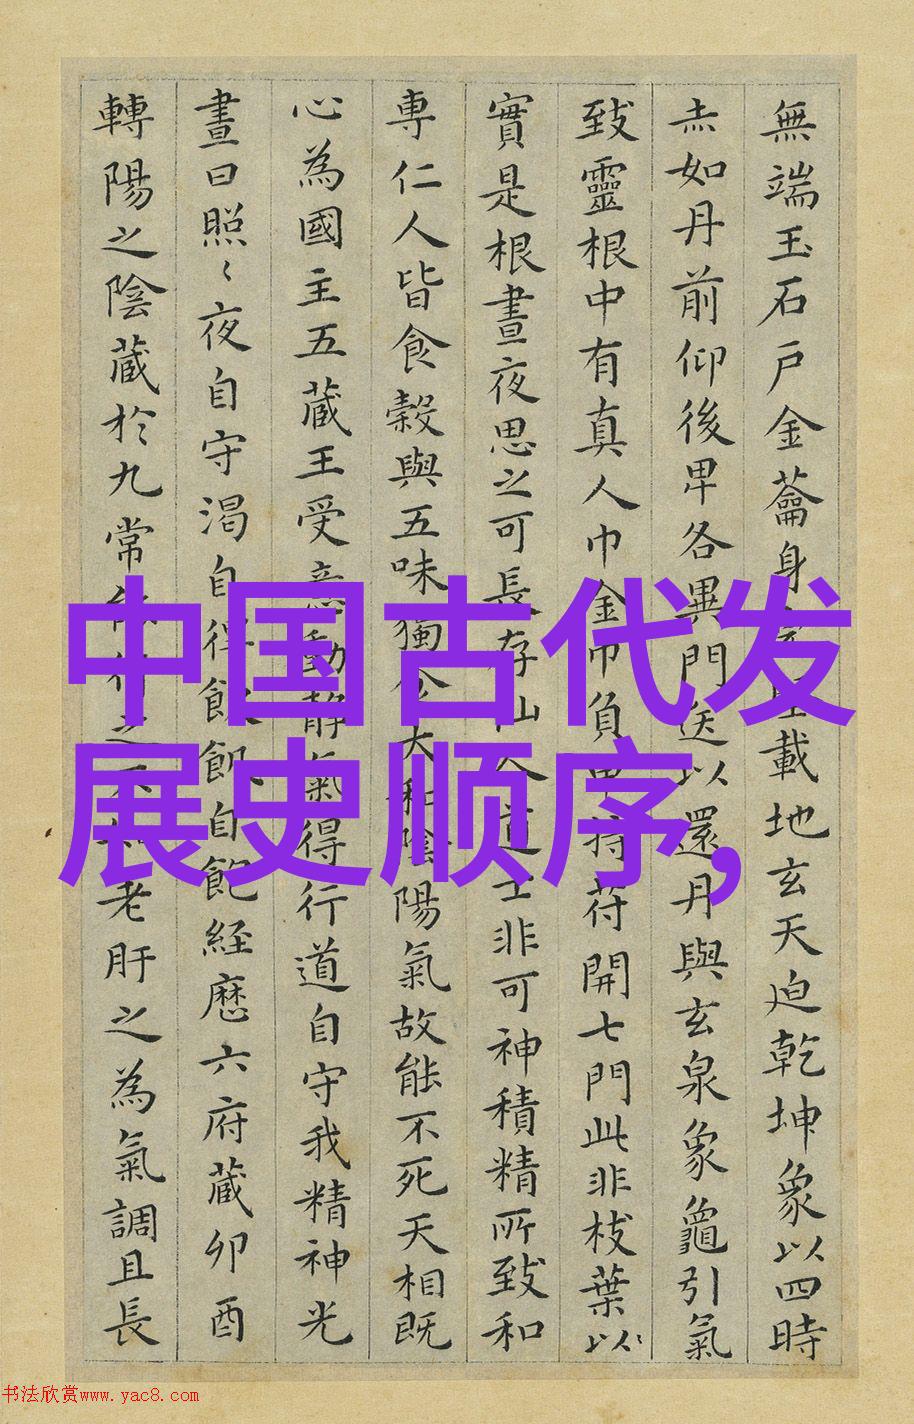 無端玉石戶金蘥身載地玄天迫乾坤象以四時
赤如丹前仰後卑各異門送以還丹與玄泉象龜引氣
致靈根中有真人巾金巾負甲持苻開七門此非枝葉以
實是根晝夜思之可長存仙人道士非可神積精所致和
專仁人皆食穀與五味獨食大和陰陽氣故能不死天相既
心為國主五藏王受意動靜氣得行道自守我精神光
晝日照〻夜自守渴自得飲飢自飽經歷六府藏卯酉
轉陽之陰藏於九常能行之不知老肝之為氣調且長
中国古代发
展史顺序,
书法欣赏www.yac8.com